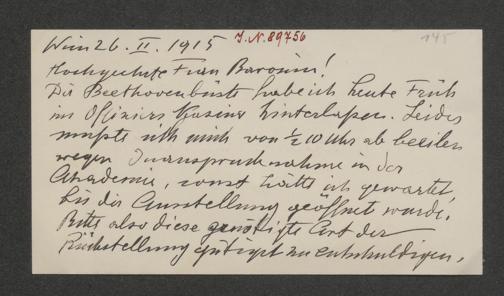 Wien 26. II. 1915 J.N. 89756
145
Hochgeehrte Frau Baronin!
Die Beethovenbüste habe ich heute Früh
ins Offiziers Kasino hinterlassen. Leider
mußte ich mich von ½ 10 Uhr ab beeilen
wegen Inanspruchnahme in der
Akademie, sonst hätte ich gewartet,
bis die Ausstellung geöffnet wurde.
Bitte also diese Art der
Rückstellung gütigst zu entschuldigen,